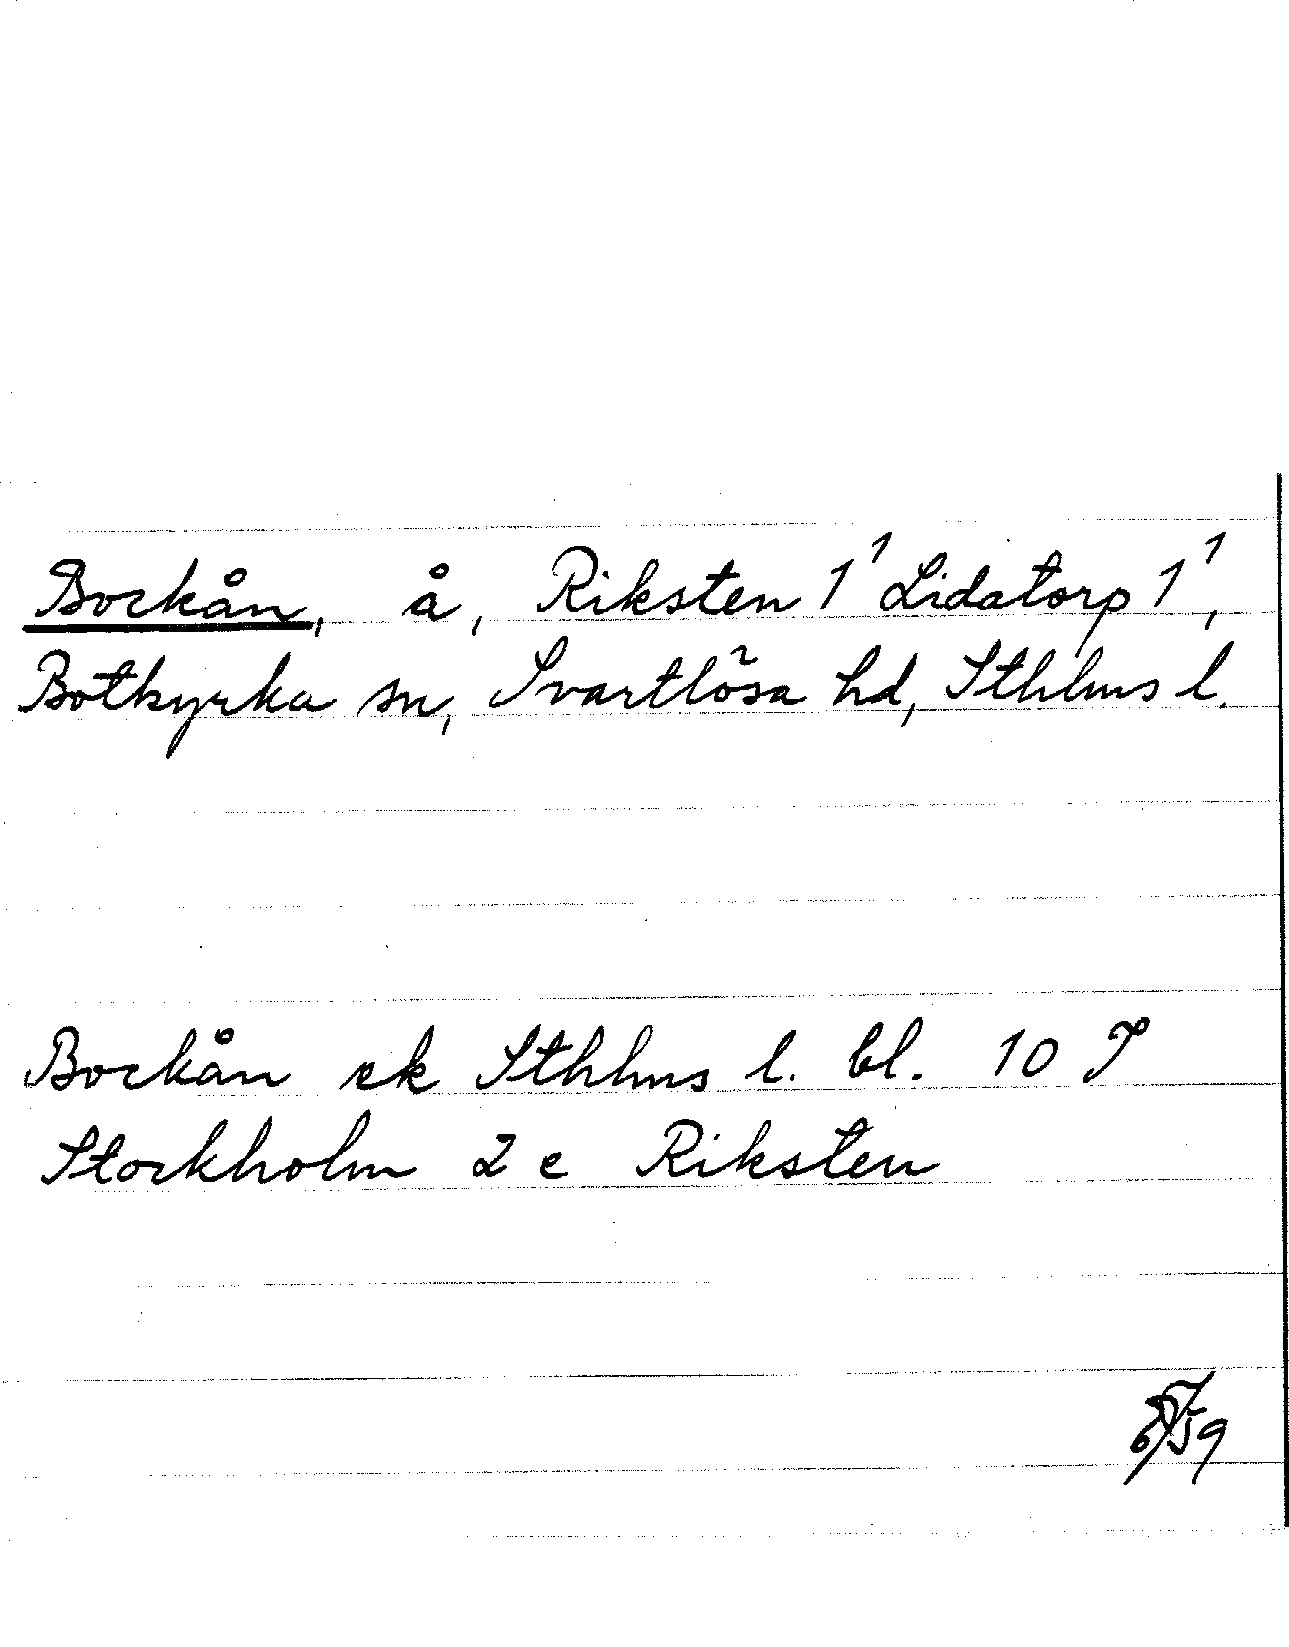 Bockån, å, Riksten 1¹ Lidatorp 1¹,
Botkyrka sn, Svartlösa hd, Sthlms l.
Bockån ek Sthlms l. bl. 10 J
Stockholm 2 e Riksten
59